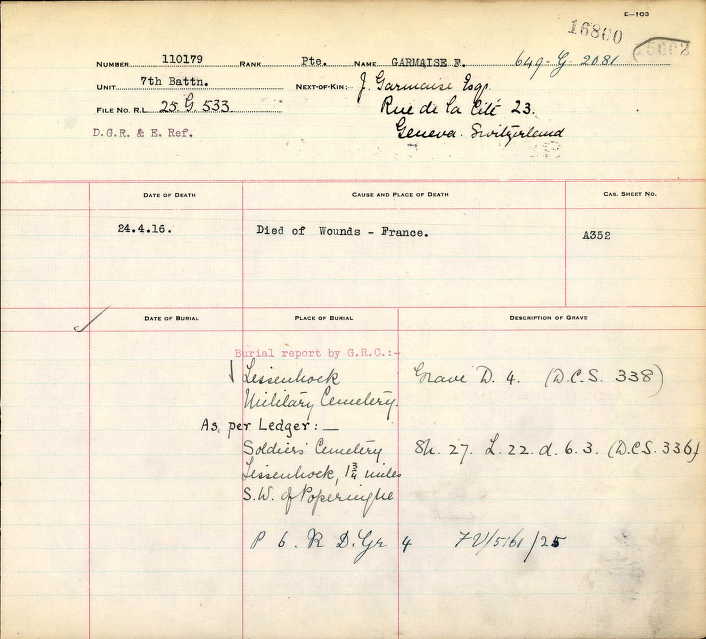 E—103
16860
15662
NUMBER 110179 RANK Pte. NAME GARMAISE F. 649-G-2081
UNIT 7th Battn. NEXT-OF-KIN:- J. Garmaise Esq.
FILE NO. R.L. 25.G.533. Rue de la Cité 23.
D.G.R. & E. Ref. Geneva. Switzerland
DATE OF DEATH CAUSE AND PLACE OF DEATH CAS. SHEET NO.
24.4.16. Died of Wounds - France. A352
DATE OF BURIAL PLACE OF BURIAL DESCRIPTION OF GRAVE
Burial report by G.R.C.:-
Lissenhock Grave D. 4. (D.C.S. 338)
Military Cemetery.
As per Ledger:—
Soldiers' Cemetery Sh. 27. L. 22. d. 6. 3. (D.C.S. 336)
Lissenhock, 1¾ miles
S.W. of Poperinghe
P 6. R D. Gr 4